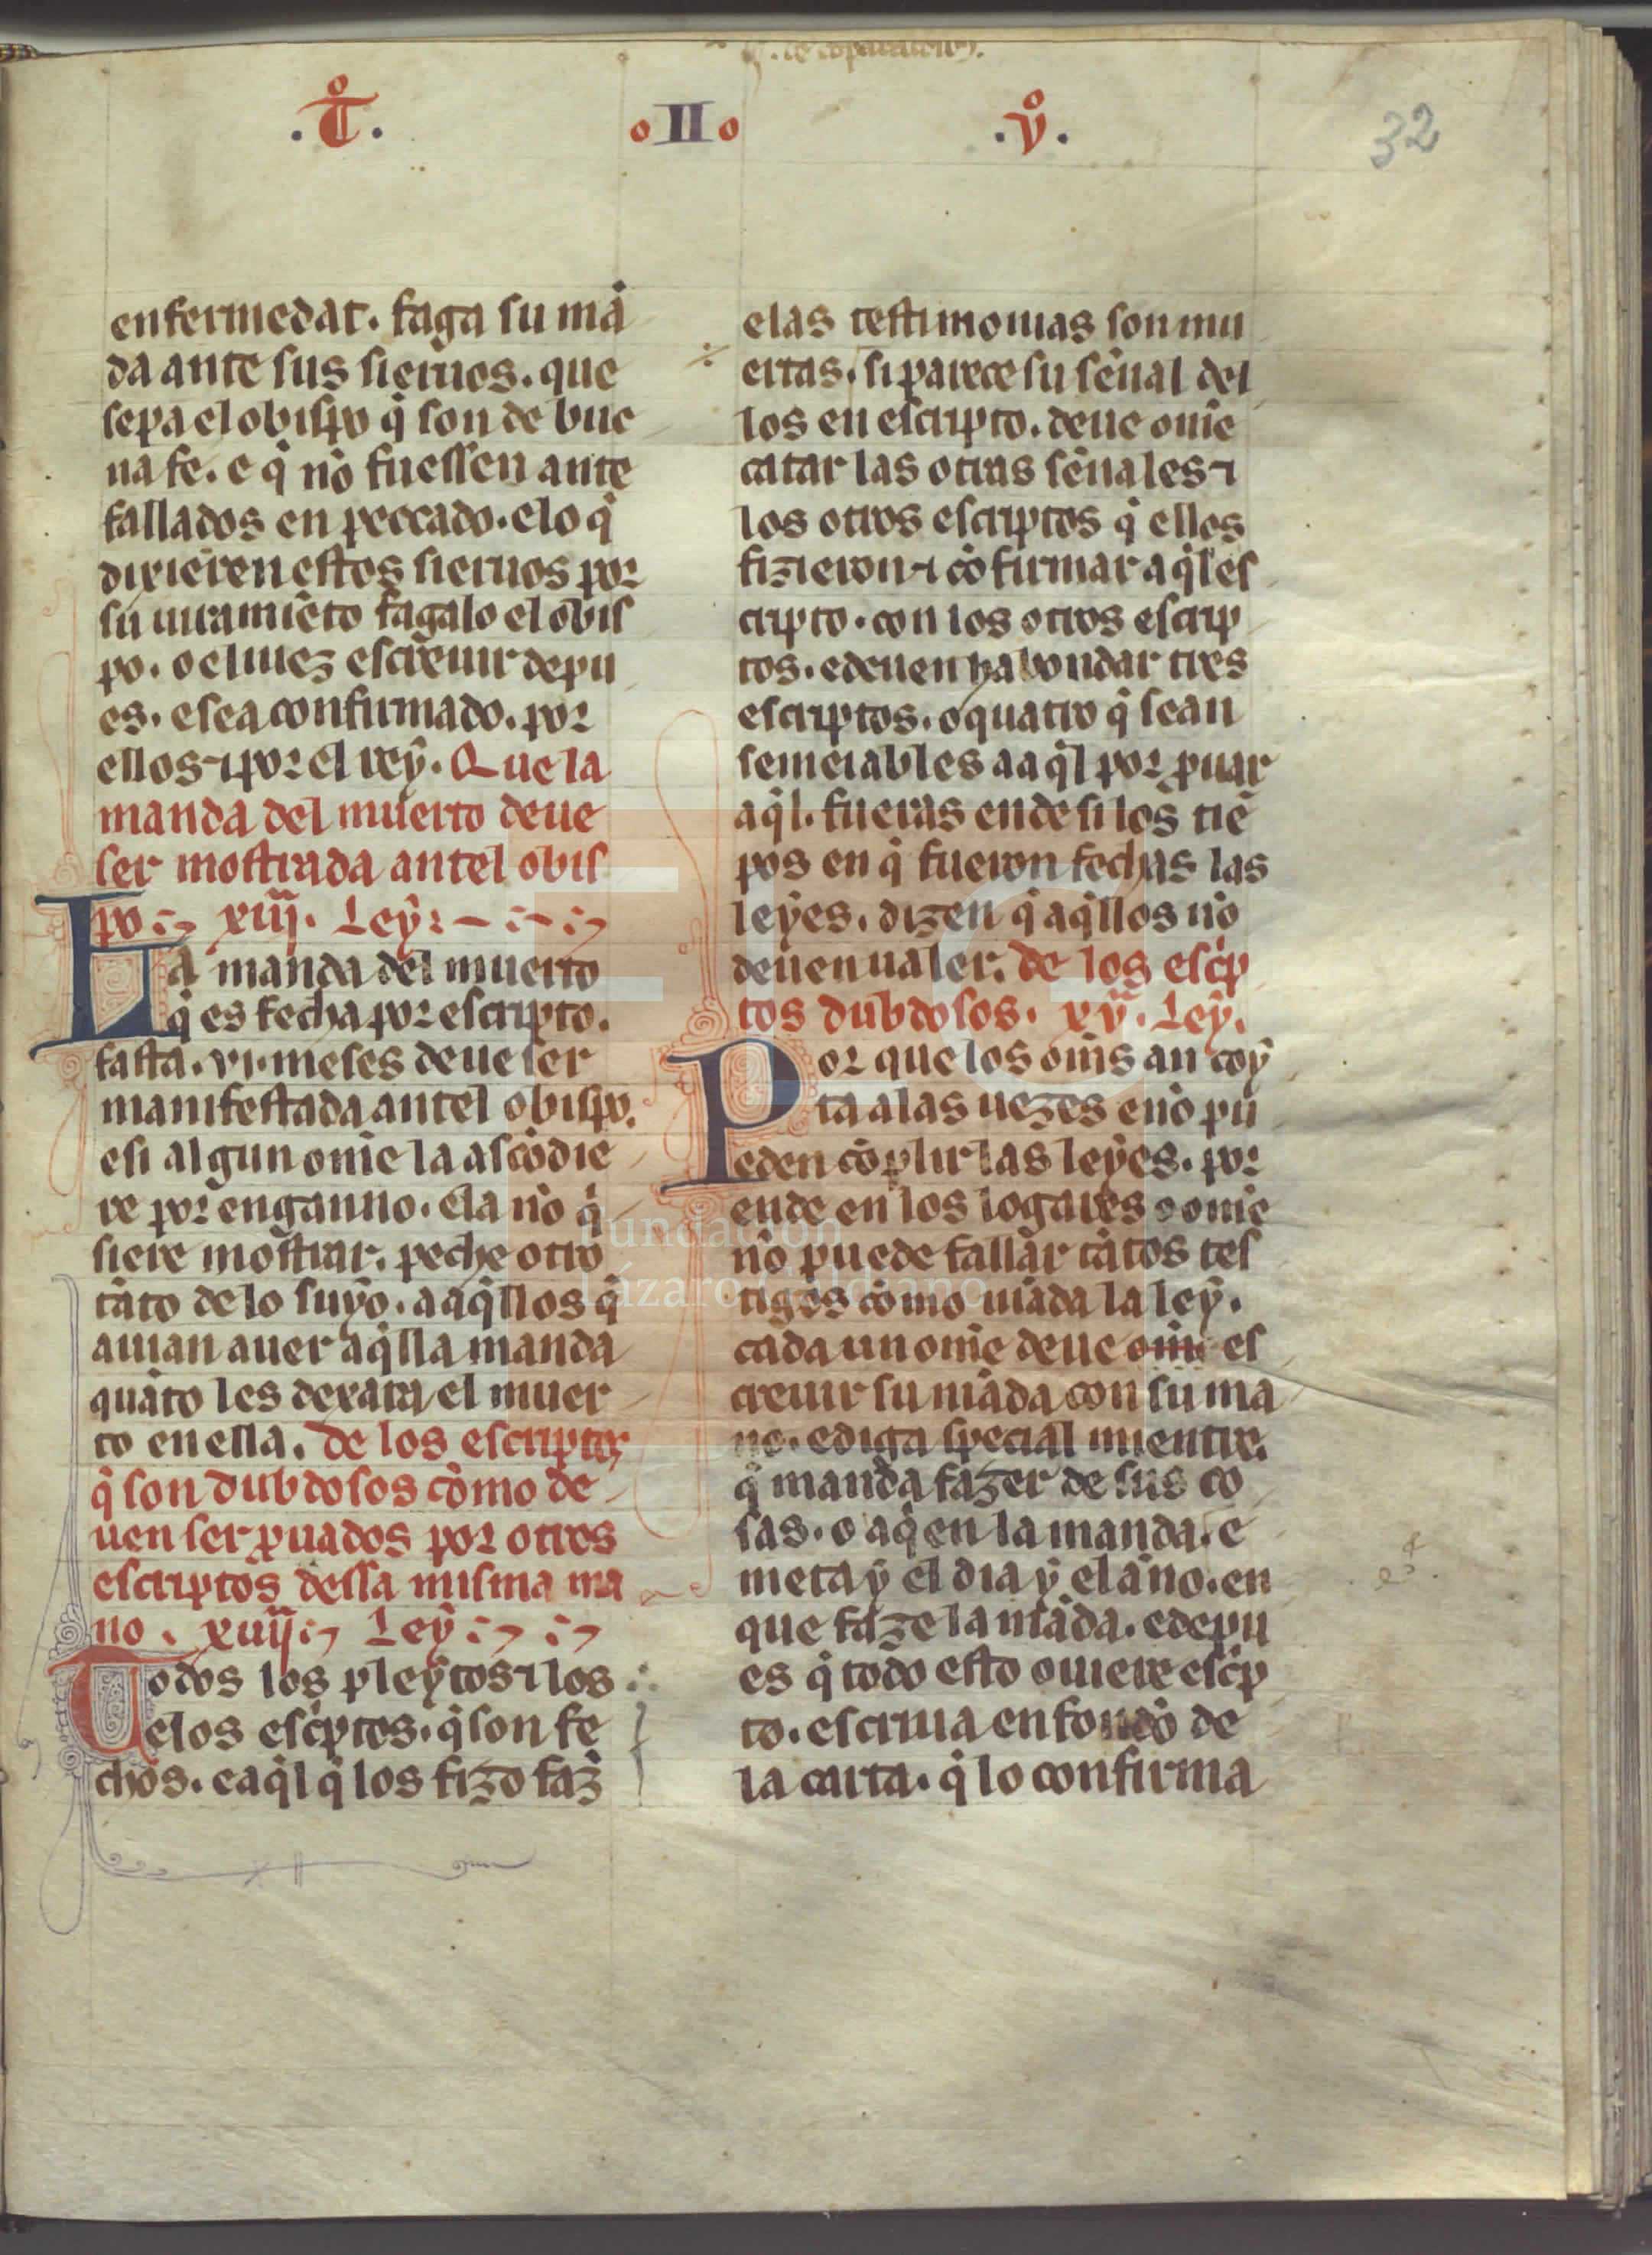 .Tͦ. II .vͦ.
32
enfermedat. faga su mā
da ante sus sieruos. que
sepa el obispo q̇ son de bue
na fe. e q̇ nō fuessen ante
fallados en peccado. e lo q̇
dixieren estos sieruos por
su iuramiēto fagalo el obis
po. o el iuez escreuir depu
es. e sea confirmado. por
ellos ⁊ por el rey. Que la
manda del muerto deue
ser mostrada antel obis
po xiij. Ley
La manda del muerto
q̇ es fecha por escripto.
fasta. vi. meses deue ser
manifestada antel obispo.
e si algun ome la ascōdie
re por enganno. e la nō q̇
siere mostrar. peche otro
tāto de lo suyo. a aq̇llos q̇
auian auer aq̇lla manda
quāto les dexara el muer
to en ella. de los escriptos
q̇ son dubdosos cōmo de
uen ser ꝓuados por otros
escriptos dessa misma ma
no. xiiij Ley
Todos los pleytos ⁊ los
elos esċptos. q̇ son fe
chos. e aq̇l q̇ los fizo faz̄
e las testimonias son mu
ertas. si parece su sēnal del
los en escripto. deue ome
catar las otras sēnales ⁊
los otros escriptos q̇ ellos
fizieron ⁊ cōfirmar aq̇l es
cripto. con los otros escrip
tos. e deuen habondar tres
escriptos. o quatro q̇ sean
semeiables a aq̇l por ꝓuar
aq̇l. fueras ende si los tiē
pos en q̇ fueron fechas las
leyes. dizen q̇ aq̇llos nō
deuen ualer. de los esċp
tos dubdosos. xv. Ley.
Por que los om̄s an coy
ta a las uezes e nō pu
eden cōplir las leyes. por
ende en los logares o ome
nō puede fallar tātos tes
tigos cōmo māda la ley.
cada un ome deue es
creuir su māda con su ma
no. e diga special mientre.
q̇ manda fazer de sus co
sas. o a q̇en la manda. e
meta y el dia y el āno. en
que faze la māda. e depu
es q̇ todo esto ouiere esċp
to. escriua en fondo de
la carta. q̇ lo confirma
Fundación
Lázaro Galdiano